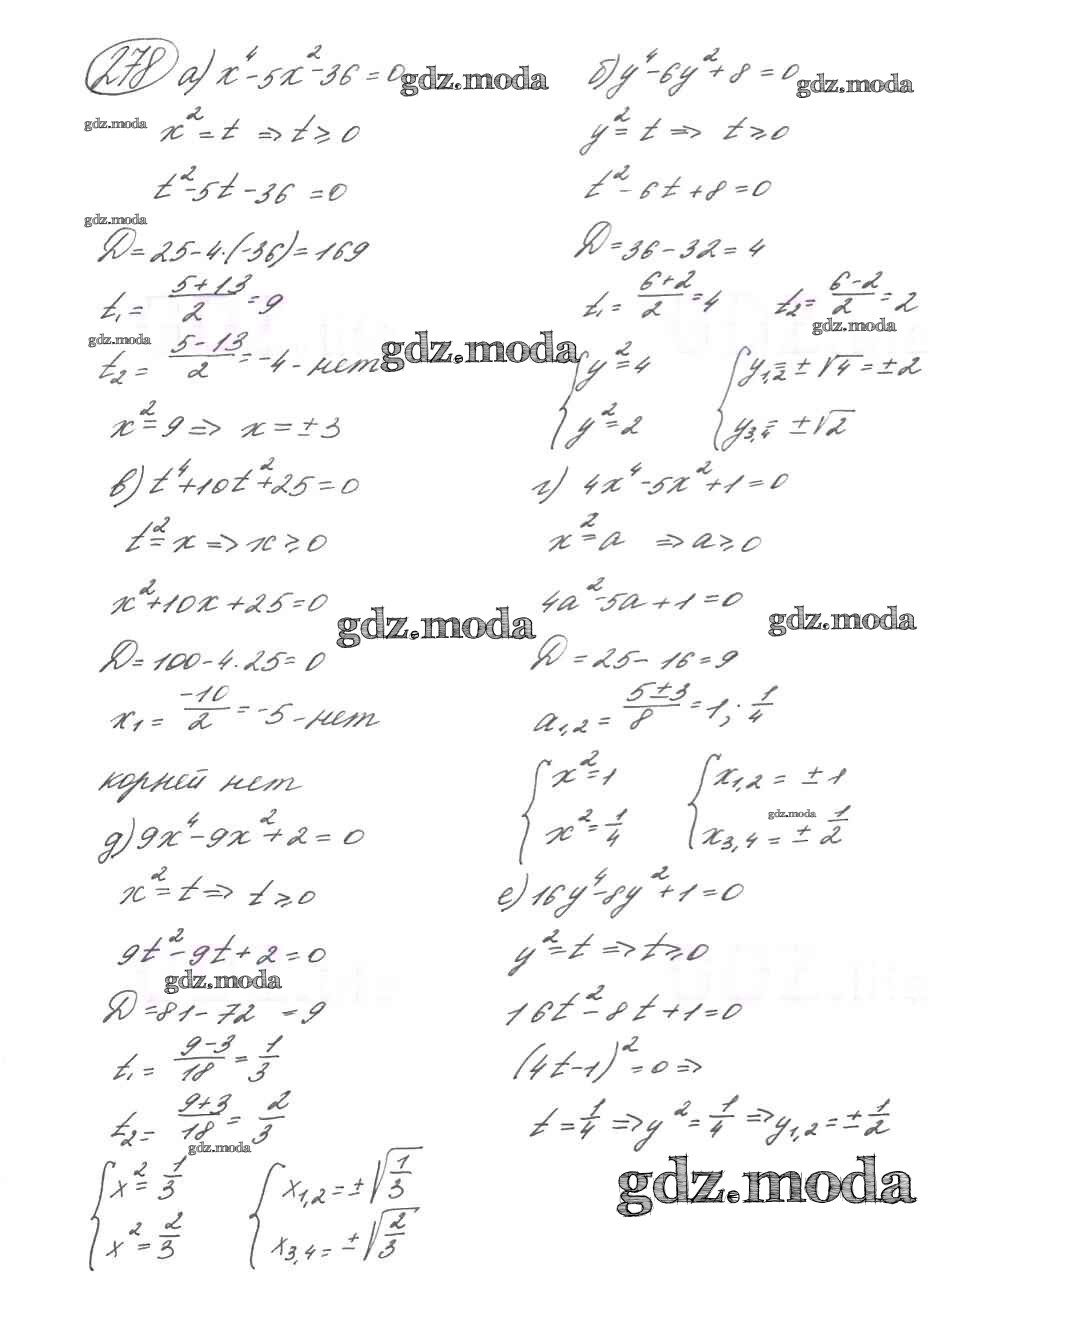 278 а) x⁴-5x²-36=0 gdz.moda
gdz.moda x²=t ⇒ t≥0
t²-5t-36=0
gdz.moda
D=25-4·(-36)=169
t₁=(5+13)/2=9
gdz.moda
t₂=(5-13)/2=-4-нет gdz.moda
x²=9 ⇒ x=±3
б) y⁴-6y²+8=0 gdz.moda
y²=t ⇒ t≥0
t²-6t+8=0
D=36-32=4
t₁=(6+2)/2=4 t₂=(6-2)/2=2
gdz.moda
{y²=4 {y₁,₂=±√4=±2
y²=2 y₃,₄=±√2
в) t⁴+10t²+25=0
t²=x ⇒ x≥0
x²+10x+25=0 gdz.moda
D=100-4·25=0
x₁=-10/2=-5-нет
корней нет
г) 4x⁴-5x²+1=0
x²=a ⇒ a≥0
4a²-5a+1=0 gdz.moda
D=25-16=9
a₁,₂=(5±3)/8=1; 1/4
{x²=1 {x₁,₂=±1
gdz.moda
x²=1/4 x₃,₄=±1/2
д) 9x⁴-9x²+2=0
x²=t ⇒ t≥0
9t²-9t+2=0
gdz.moda
D=81-72=9
t₁=(9-3)/18=1/3
t₂=(9+3)/18=2/3
gdz.moda
{x²=1/3 {x₁,₂=±√(1/3)
x²=2/3 x₃,₄=±√(2/3)
е) 16y⁴-8y²+1=0
y²=t ⇒ t≥0
16t²-8t+1=0
(4t-1)²=0 ⇒
t=1/4 ⇒ y²=1/4 ⇒ y₁,₂=±1/2
gdz.moda